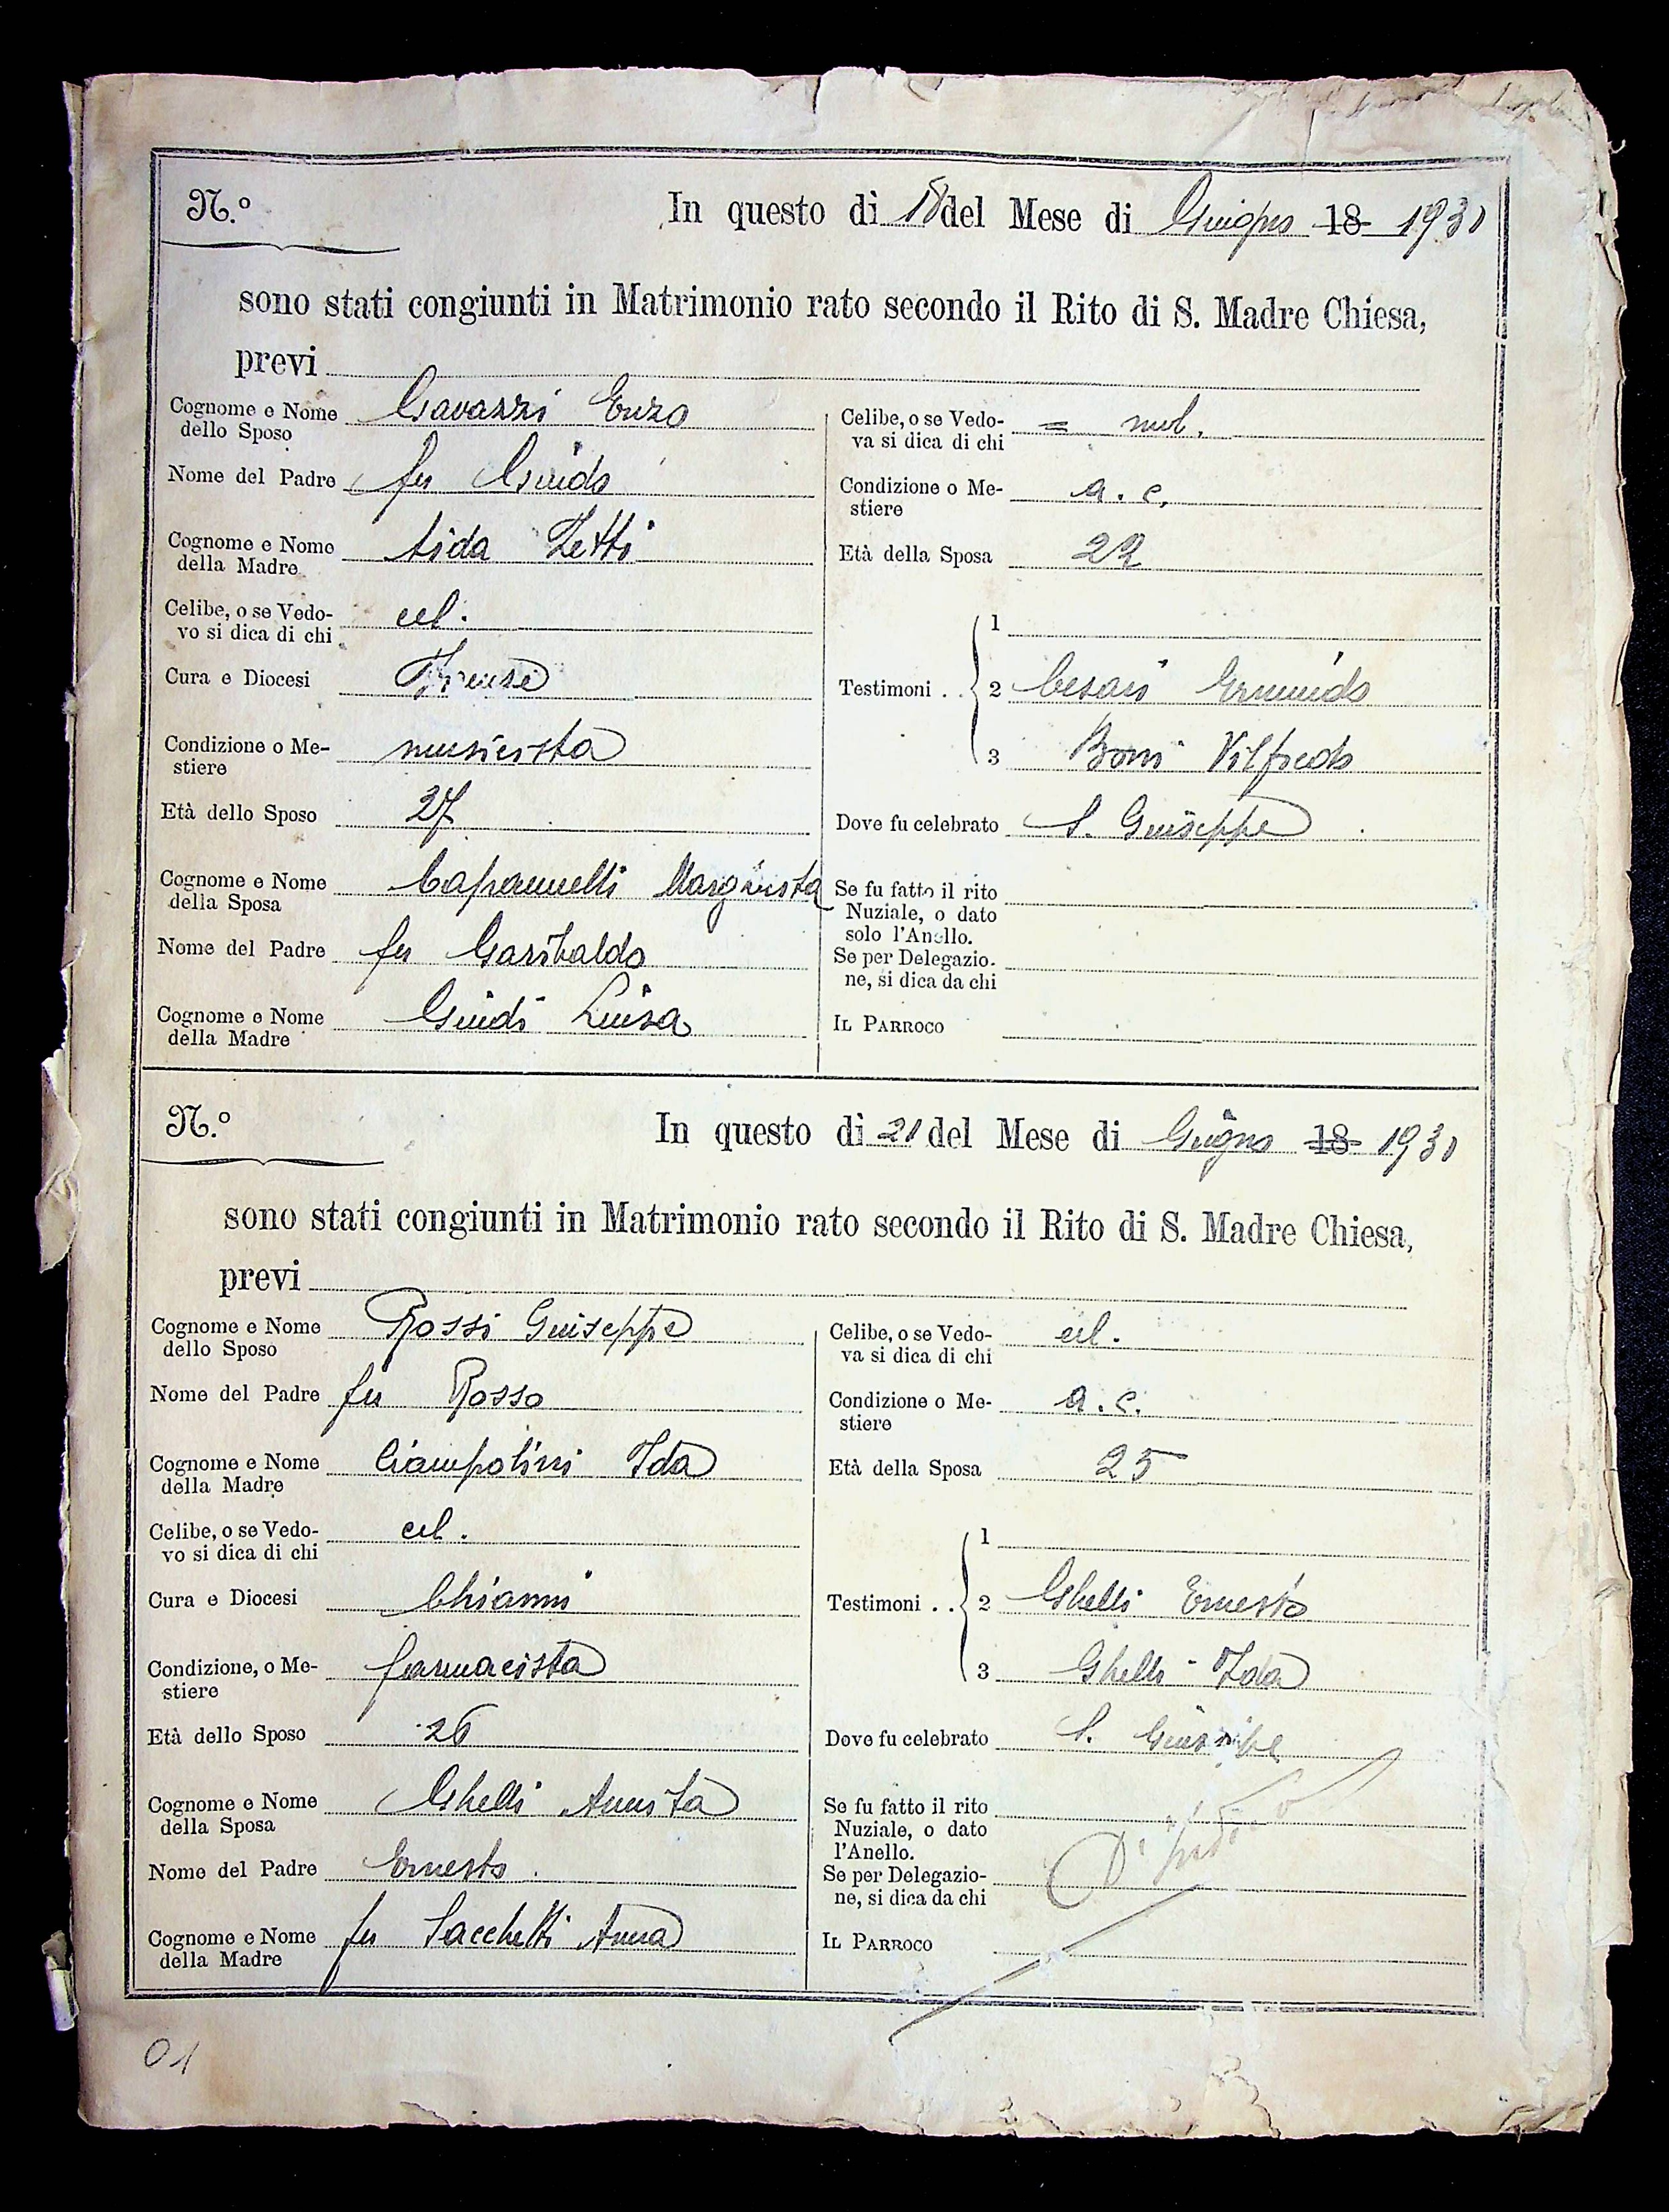 N.º
In questo dì 18 del Mese di Giugno 18 1930
sono stati congiunti in Matrimonio rato secondo il Rito di S. Madre Chiesa,
previ
Cognome e Nome dello Sposo Gavazzi Enzo
Nome del Padre fu Guido
Cognome e Nome della Madre Aida Zetti
Celibe, o se Vedovo si dica di chi cel.
Cura e Diocesi Firenze
Condizione o Mestiere musicista
Età dello Sposo 27
Cognome e Nome della Sposa Capannelli Margherita
Nome del Padre fu Garibaldo
Cognome e Nome della Madre Guidi Luisa
Celibe, o se Vedova si dica di chi = nub.
Condizione o Mestiere a. c.
Età della Sposa 22
Testimoni . .
1
2 Cesari Ermindo
3 Boni Vilfredo
Dove fu celebrato S. Giuseppe
Se fu fatto il rito Nuziale, o dato solo l'Anello.
Se per Delegazione, si dica da chi
IL PARROCO
N.º
In questo dì 21 del Mese di Giugno 18 1930
sono stati congiunti in Matrimonio rato secondo il Rito di S. Madre Chiesa,
previ
Cognome e Nome dello Sposo Rossi Giuseppe
Nome del Padre fu Rosso
Cognome e Nome della Madre Ciampolini Ida
Celibe, o se Vedovo si dica di chi cel.
Cura e Diocesi Chianni
Condizione, o Mestiere farmacista
Età dello Sposo 26
Cognome e Nome della Sposa Ghelli Annita
Nome del Padre Ernesto
Cognome e Nome della Madre fu Sacchetti Anna
Celibe, o se Vedova si dica di chi cel.
Condizione o Mestiere a. c.
Età della Sposa 25
Testimoni . .
1
2 Ghelli Ernesto
3 Ghelli Ida
Dove fu celebrato S. Giuseppe
Se fu fatto il rito Nuziale, o dato l'Anello.
Se per Delegazione, si dica da chi
IL PARROCO
01